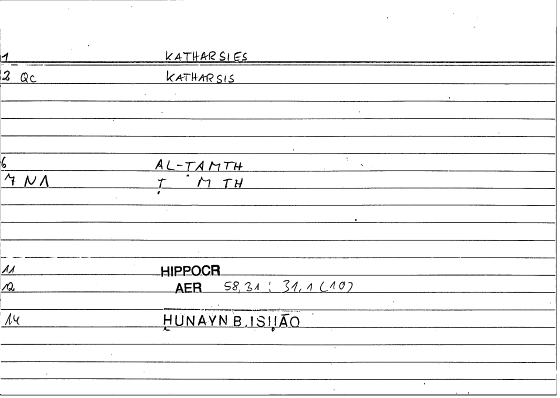 1 KATHARSIES
2 QC KATHARSIS
6 AL-ṬAMTH
7 N1 Ṭ M TH
11 HIPPOCR
12 AER 58,31 : 31,1 (10)
14 ḤUNAYN B.ISḤĀQ